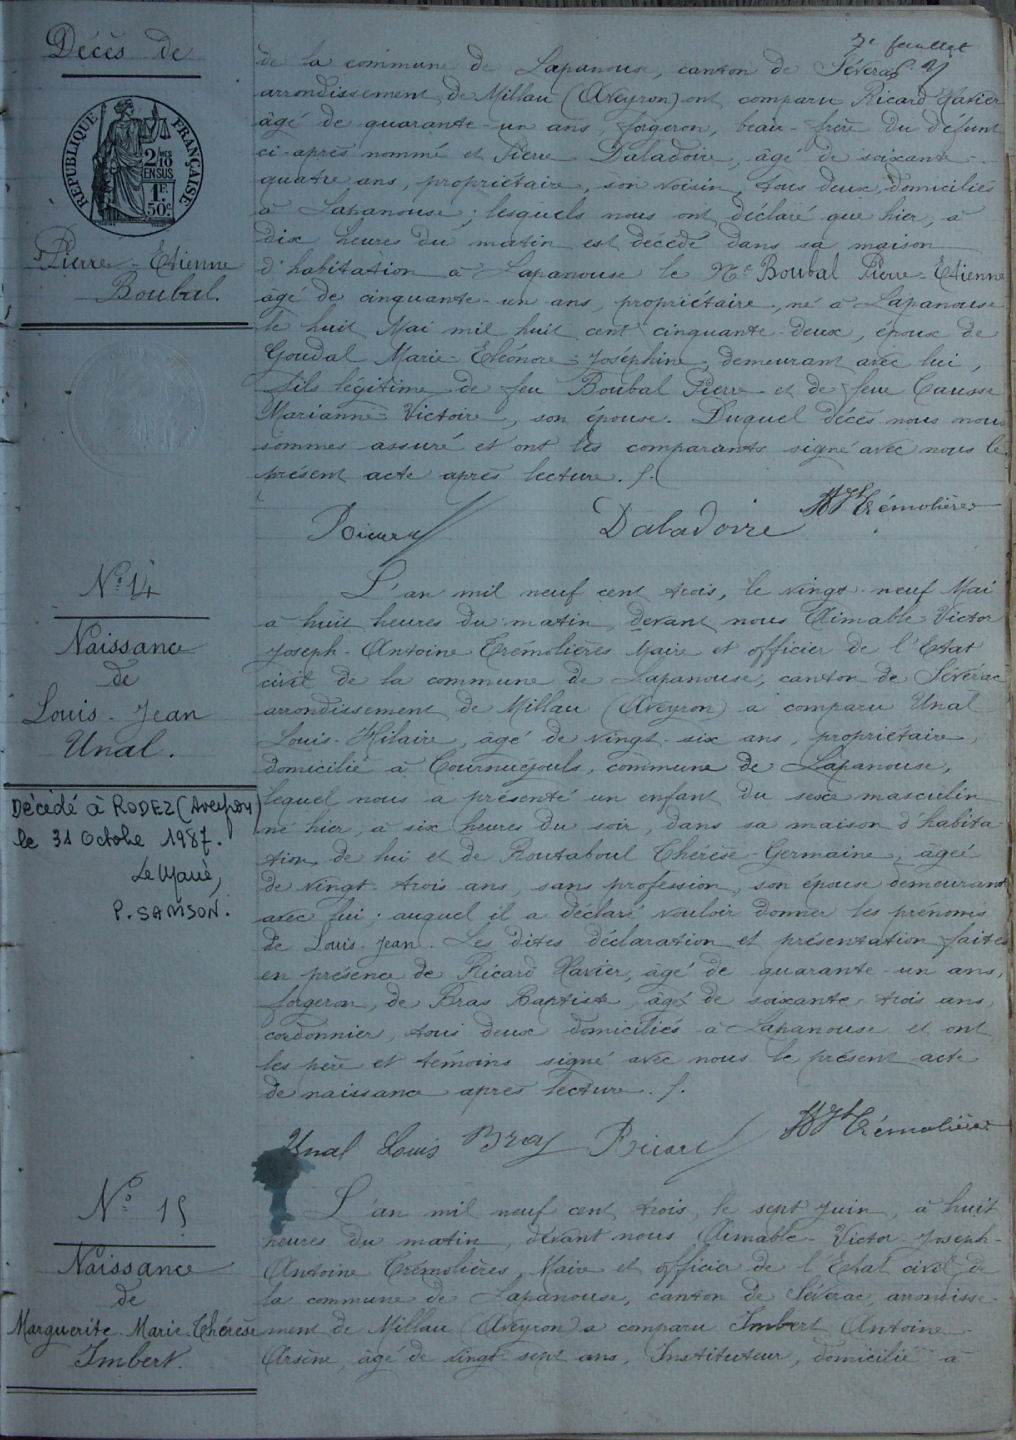 7e feuillet
Décès de
RÉPUBLIQUE FRANÇAISE
2/10
EN SUS
1F.
50c.
Pierre-Etienne
Boubal.
de la commune de Lapanouse, canton de Sévérac
arrondissement de Millau (Aveyron) ont comparu Ricard Xavier
âgé de quarante-un ans, forgeron, beau-frère du défunt
ci-après nommé et Pierre Daladoire, âgé de soixante-
quatre ans, propriétaire, son voisin, tous deux domiciliés
à Lapanouse ; lesquels nous ont déclaré que hier, à
dix heures du matin est décédé dans sa maison
d'habitation à Lapanouse le Né Boubal Pierre-Etienne
âgé de cinquante-un ans, propriétaire, né à Lapanouse
le huit Mai mil huit cent cinquante-deux, époux de
Goudal Marie-Eléonore-Joséphine, demeurant avec lui,
fils légitime de feu Boubal Pierre et de feue Causse
Marianne-Victoire, son épouse. Duquel décès nous nous
sommes assuré et ont les comparants signé avec nous le
présent acte après lecture. /.
Ricard Daladoire Trémolières
No 14
Naissance
de
Louis-Jean
Unal.
Décédé à RODEZ (Aveyron)
le 31 Octobre 1987.
Le Maire,
P. SAMSON.
L'an mil neuf cent trois, le vingt-neuf Mai
à huit heures du matin, devant nous Aimable Victor
Joseph-Antoine Trémolières Maire et officier de l'Etat
civil de la commune de Lapanouse, canton de Sévérac
arrondissement de Millau (Aveyron) a comparu Unal
Louis-Hilaire, âgé de vingt-six ans, propriétaire,
domicilié à Cournuejouls, commune de Lapanouse,
lequel nous a présenté un enfant du sexe masculin
né hier, à six heures du soir, dans sa maison d'habita-
tion, de lui et de Routaboul Thérèse-Germaine, âgée
de vingt-trois ans, sans profession, son épouse demeurant
avec lui ; auquel il a déclaré vouloir donner les prénoms
de Louis-Jean. Les dites déclaration et présentation faites
en présence de Ricard Xavier, âgé de quarante-un ans,
forgeron, de Bras Baptiste, âgé de soixante-trois ans,
cordonnier, tous deux domiciliés à Lapanouse et ont
les père et témoins signé avec nous le présent acte
de naissance après lecture. /.
Unal Louis Bras Ricard Trémolières
No 15
Naissance
de
Marguerite-Marie-Thérèse
Imbert.
L'an mil neuf cent trois, le sept Juin, à huit
heures du matin, devant nous Aimable-Victor-Joseph-
Antoine Trémolières, Maire et officier de l'Etat civil de
la commune de Lapanouse, canton de Sévérac, arrondisse-
ment de Millau (Aveyron) a comparu Imbert Antoine-
Arsène, âgé de vingt-sept ans, Instituteur, domicilié à